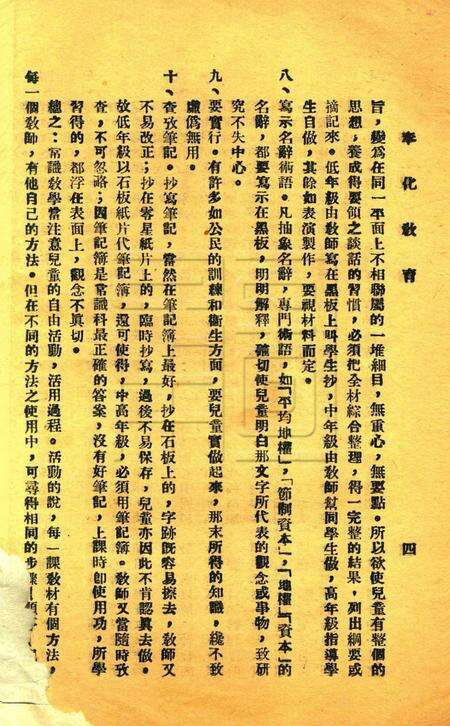 奉化教育
四
旨，變為在同一平面上不相聯屬的一堆細目，無重心，無要點。所以欲使兒童有整個的
思想，養成得要領之談話的習慣，必須把全材綜合整理，得一完整的結果，列出綱要或
摘記來。低年級由教師寫在黑板上叫學生抄，中年級由教師幫同學生做，高年級指導學
生自做，其餘如表演製作，要視材料而定。
八、寫示名辭術語。凡抽象名辭，專門術語，如「平均地權」，「節制資本」，「地權」「資本」的
名辭，都要寫示在黑板，明明解釋，確切使兒童明白那文字所代表的觀念或事物，致研
究不失中心。
九、要實行。有許多如公民的訓練和衞生方面，要兒童實做起來，那末所得的知識，纔不致
虛為無用。
十、查攷筆記。抄寫筆記，當然在筆記簿上最好，抄在石板上的，字跡旣容易擦去，敎師又
不易改正；抄在零星紙片上的，臨時抄寫，過後不易保存，兒童亦因此不肯認眞去做。
故低年級以石板紙片代筆記簿，還可使得，中高年級，必須用筆記簿。敎師又當隨時攷
查，不可忽略；因筆記簿是常識科最正確的答案，沒有好筆記，上課時卽使用功，所學
習得的，都浮在表面上，觀念不眞切。
總之：常識敎學當注意兒童的自由活動，活用過程。活動的說，每一課敎材有個方法，
每一個敎師，有他自己的方法。但在不同的方法之使用中，可尋得相同的步驟